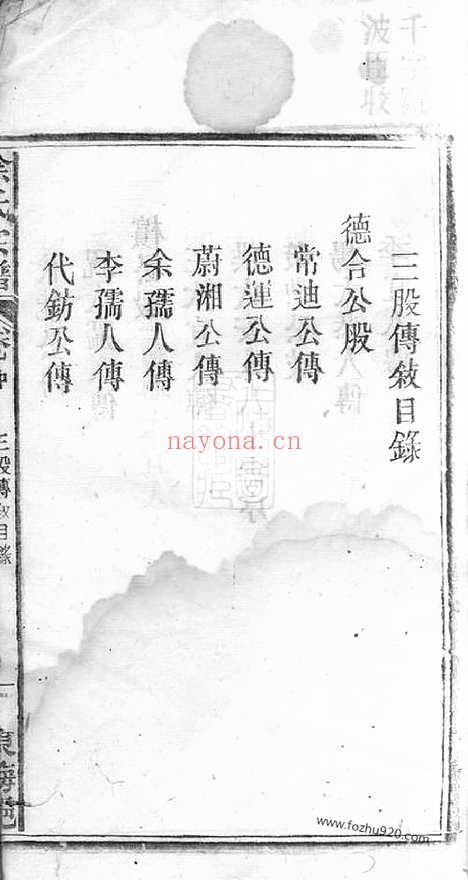 三股傳敘目錄
德合公股
常迪公傳
德運公傳
蔚湘公傳
余孺人傳
李孺人傳
代鈁公傳
三股傳敘目錄
東海邑
nayona.cn
www.fozhu920.com